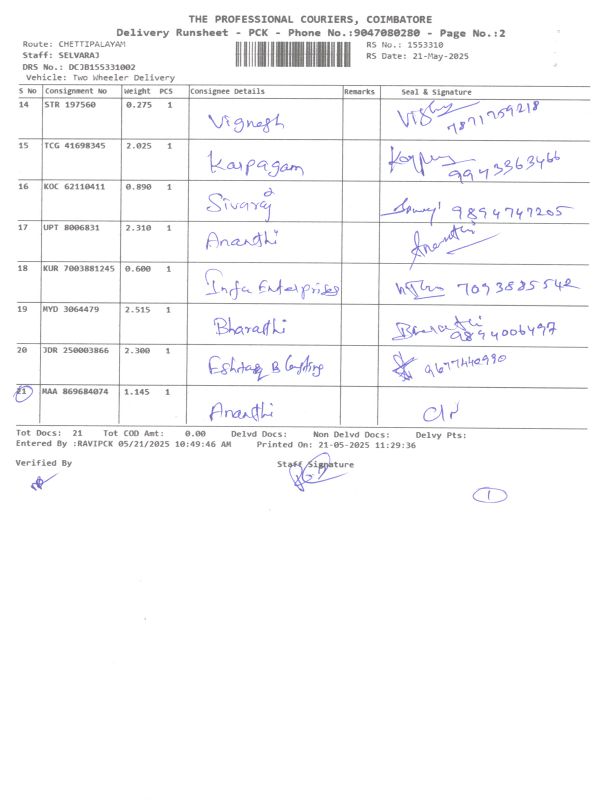 THE PROFESSIONAL COURIERS, COIMBATORE
Delivery Runsheet - PCK - Phone No.:9047080280 - Page No.:2
Route: CHETTIPALAYAM RS No.: 1553310
Staff: SELVARAJ RS Date: 21-May-2025
DRS No.: DCJB155331002
Vehicle: Two Wheeler Delivery
S No Consignment No Weight PCS Consignee Details Remarks Seal & Signature
14 STR 197560 0.275 1 Vignesh 7871759218
15 TCG 41698345 2.025 1 Karpagam 9943363466
16 KOC 62110411 0.890 1 Sivaraj 9894747205
17 UPT 8006831 2.310 1 Ananthi Ananthi
18 KUR 7003881245 0.600 1 Infa Enterprises 7093885542
19 MYD 3064479 2.515 1 Bharathi Bharathi 9894006497
20 JDR 250003866 2.300 1 9677440990
21 MAA 869684074 1.145 1 Ananthi
Tot Docs: 21 Tot COD Amt: 0.00 Delvd Docs: Non Delvd Docs: Delvy Pts:
Entered By :RAVIPCK 05/21/2025 10:49:46 AM Printed On: 21-05-2025 11:29:36
Verified By Staff Signature
1